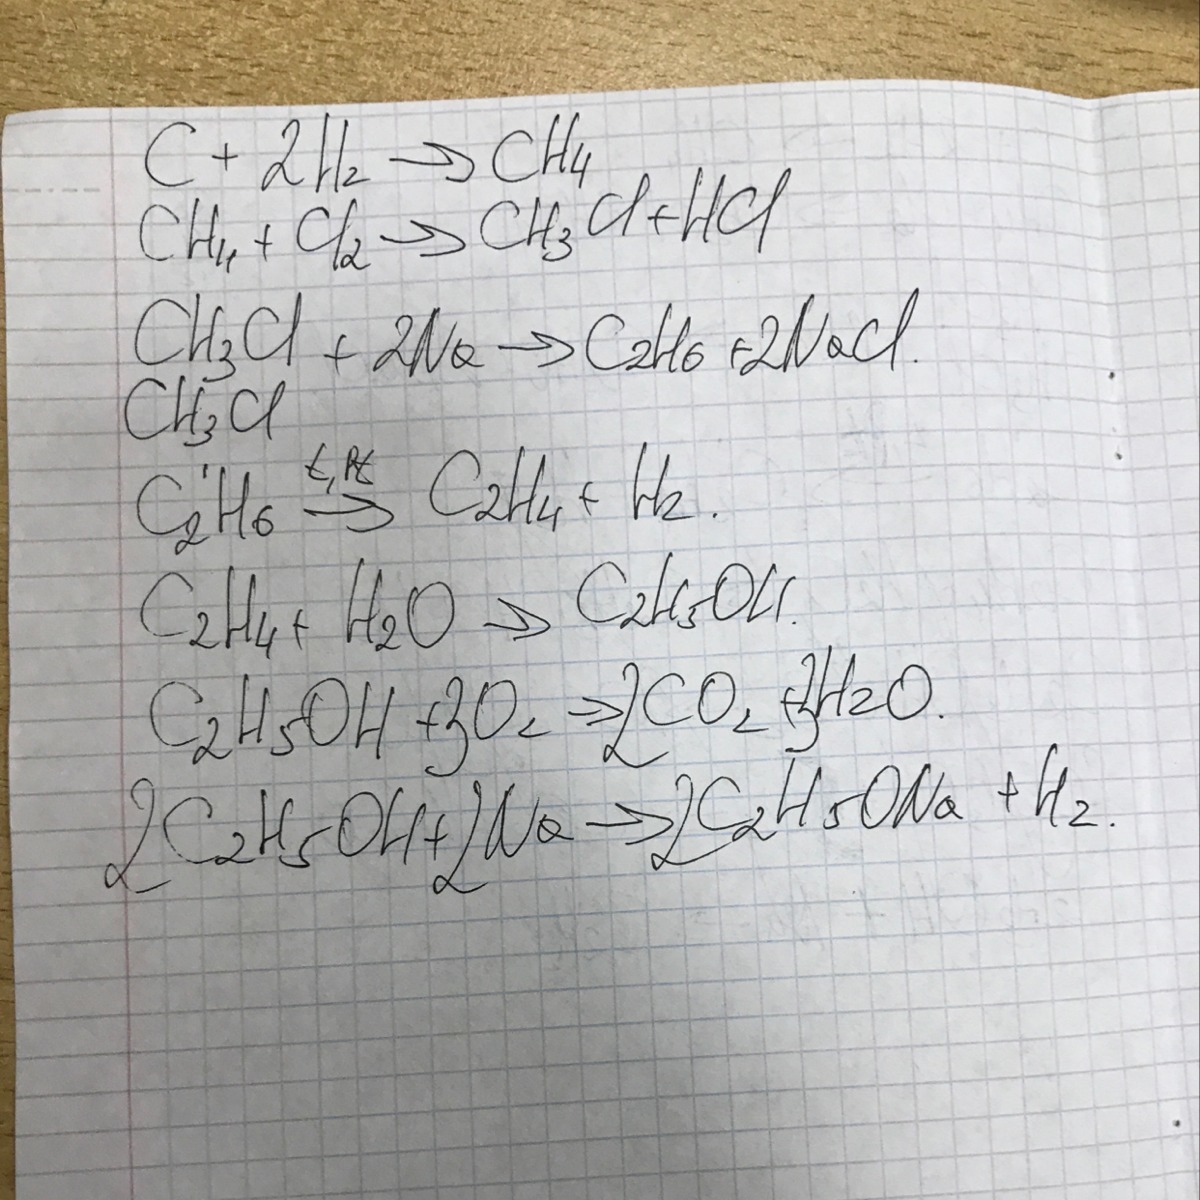 C + 2H2 → CH4
CH4 + Cl2 → CH3Cl + HCl
CH3Cl + 2Na → C2H6 + 2NaCl.
CH3Cl
t, Pt
C2H6 → C2H4 + H2.
C2H4 + H2O → C2H5OH.
C2H5OH + 3O2 → 2CO2 + 3H2O.
2C2H5OH + 2Na → 2C2H5ONa + H2.